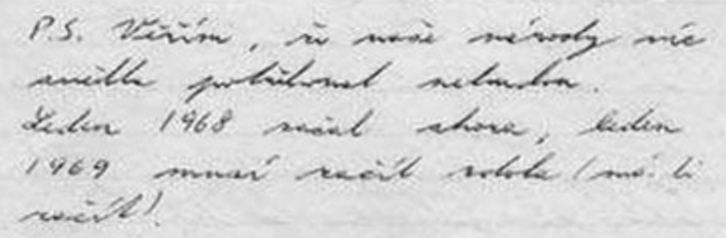 P.S. Věřím, že naše národy víc
světla potřebovat nebudou.
Leden 1968 začal shora, leden
1969 musí začít zdola (má-li
začít).